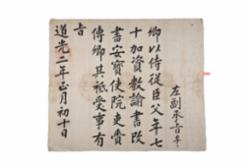 左副承旨李
卿以侍從臣父年七
十加資教諭書改
書安寶使院吏賫
傳卿其祗受事有
旨
道光二年正月初十日